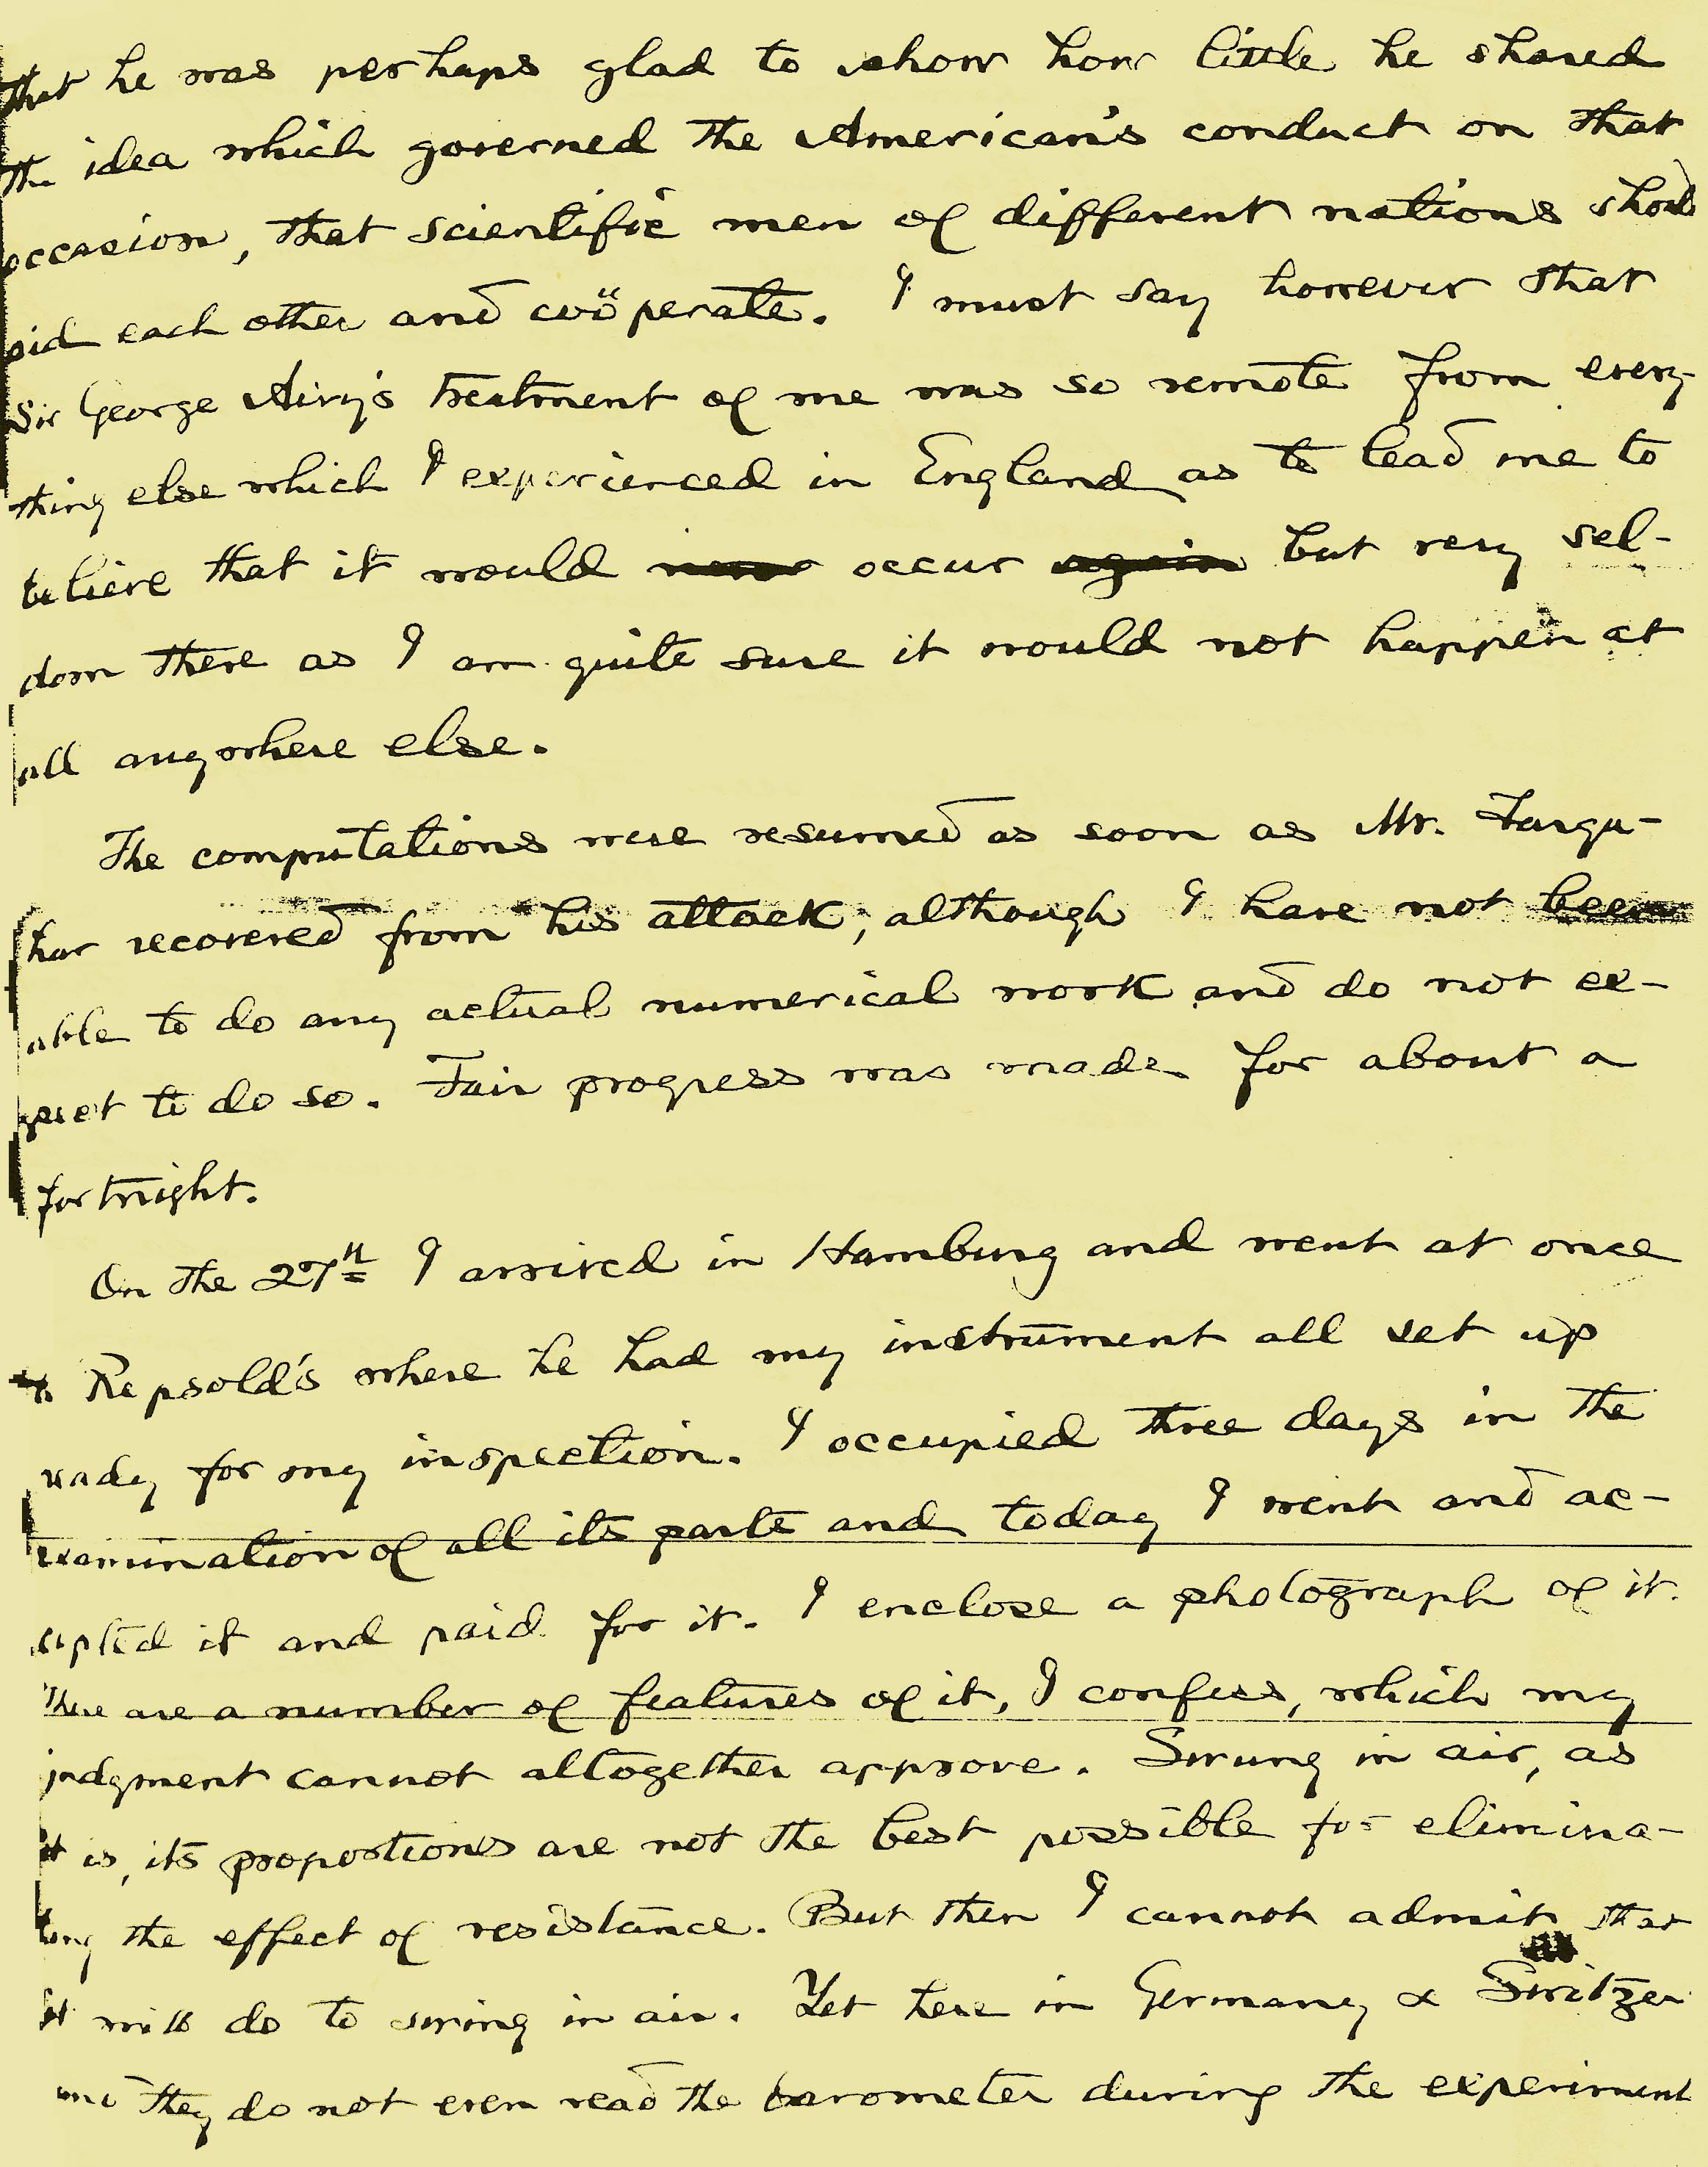 that he was perhaps glad to show how little he shared
the idea which governed the American's conduct on that
occasion, that scientific men of different nations should
aid each other and coöperate. I must say however that
Sir George Airy's treatment of me was so remote from every-
thing else which I experienced in England as to lead me to
believe that it would never occur again but very sel-
dom there as I am quite sure it would not happen at
all anywhere else.
The computations were resumed as soon as Mr. Farqu-
har recovered from his attack; although I have not been
able to do any actual numerical work and do not ex-
pect to do so. Fair progress was made for about a
fortnight.
On the 27th I arrived in Hamburg and went at once
to Repsold's where he had my instrument all set up
ready for my inspection. I occupied three days in the
examination of all its parts and today I went and ac-
cepted it and paid for it. I enclose a photograph of it.
There are a number of features of it, I confess, which my
judgment cannot altogether approve. Swung in air, as
it is, its proportions are not the best possible for elimina-
ting the effect of resistance. But then I cannot admit that
it will do to swing in air. Yet here in Germany & Switzer
land they do not even read the barometer during the experiment